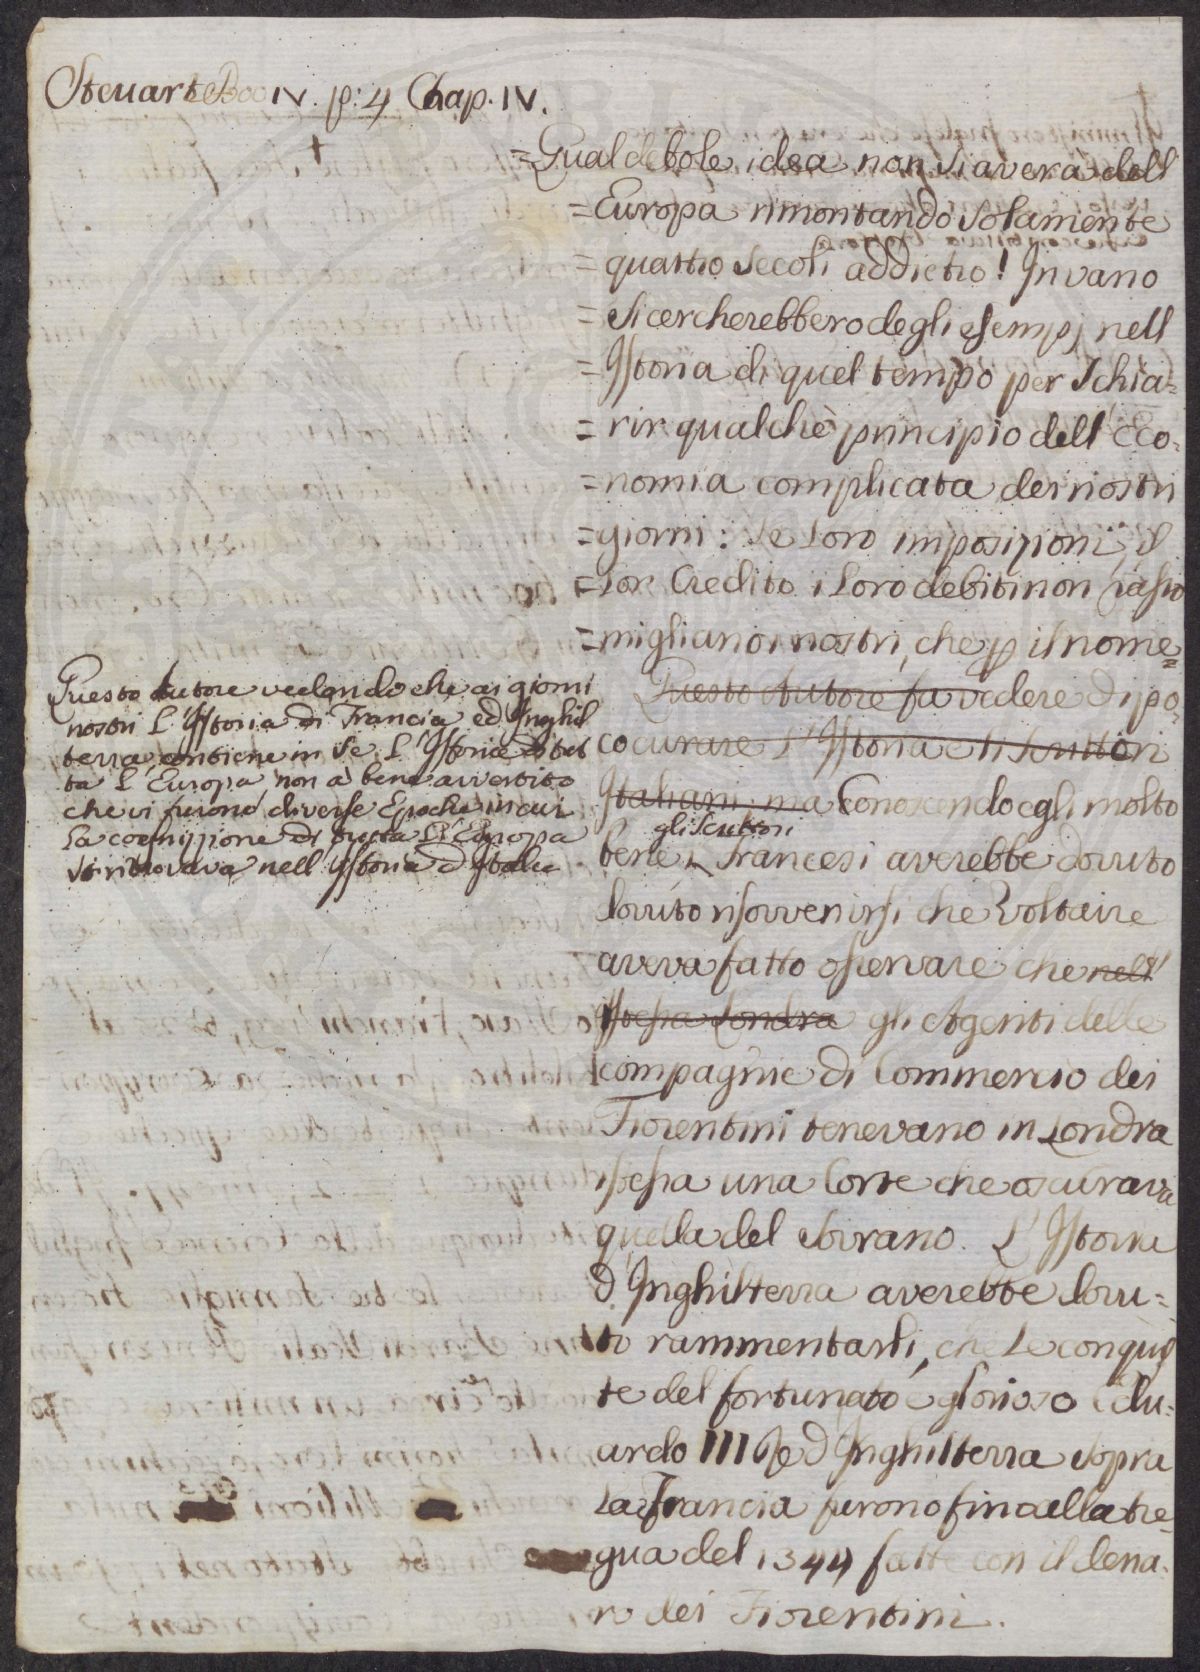 Steuart Boo IV. p: 4 Chap. IV.
=Qual debole idea non si averà dell'
=Europa rimontando solamente
=quattro secoli addietro! Invano
=si cercherebbero degli esempj nell
=Istoria di quel tempo per Schia=
=rir qualchè principio dell' Eco=
=nomia complicata dei nostri
=giorni: Le Loro imposizioni, il
=Lor Credito i Loro debiti non rasso
=migliano i nostri, che p il nome=
Questo Autore fa vedere di po=
co curare L'Istoria e li Scrittori
Italiani: ma Conoscendo egli molto
gli Scrittori
bene i Francesi averebbe dovuto
dovuto risovvenirsi che Voltaire
aveva fatto osservare che nell'
Istessa Londra gli Agenti delle
compagnie di Commercio dei
Fiorentini tenevano in Londra
istessa una Corte che oscurava
quella del Sovrano. L'Istoria
d'Inghilterra averebbe dovu=
to rammentarli, che Le conquis
te del fortunato e glorioso Edu=
ardo III Re d'Inghilterra sopra
La Francia furono fino alla tre=
gua del 1344 fatte con il dena=
ro dei Fiorentini.
Questo Autore vedendo che ai giorni
nostri L'Istoria di Francia ed Inghil
terra contiene in Se L'Istoria di tut
ta L'Europa non à bene avvertito
che vi furono diverse Epoche in cui
La cognizione di tutta L'Europa
si ritrovava nell Istoria d'Italia